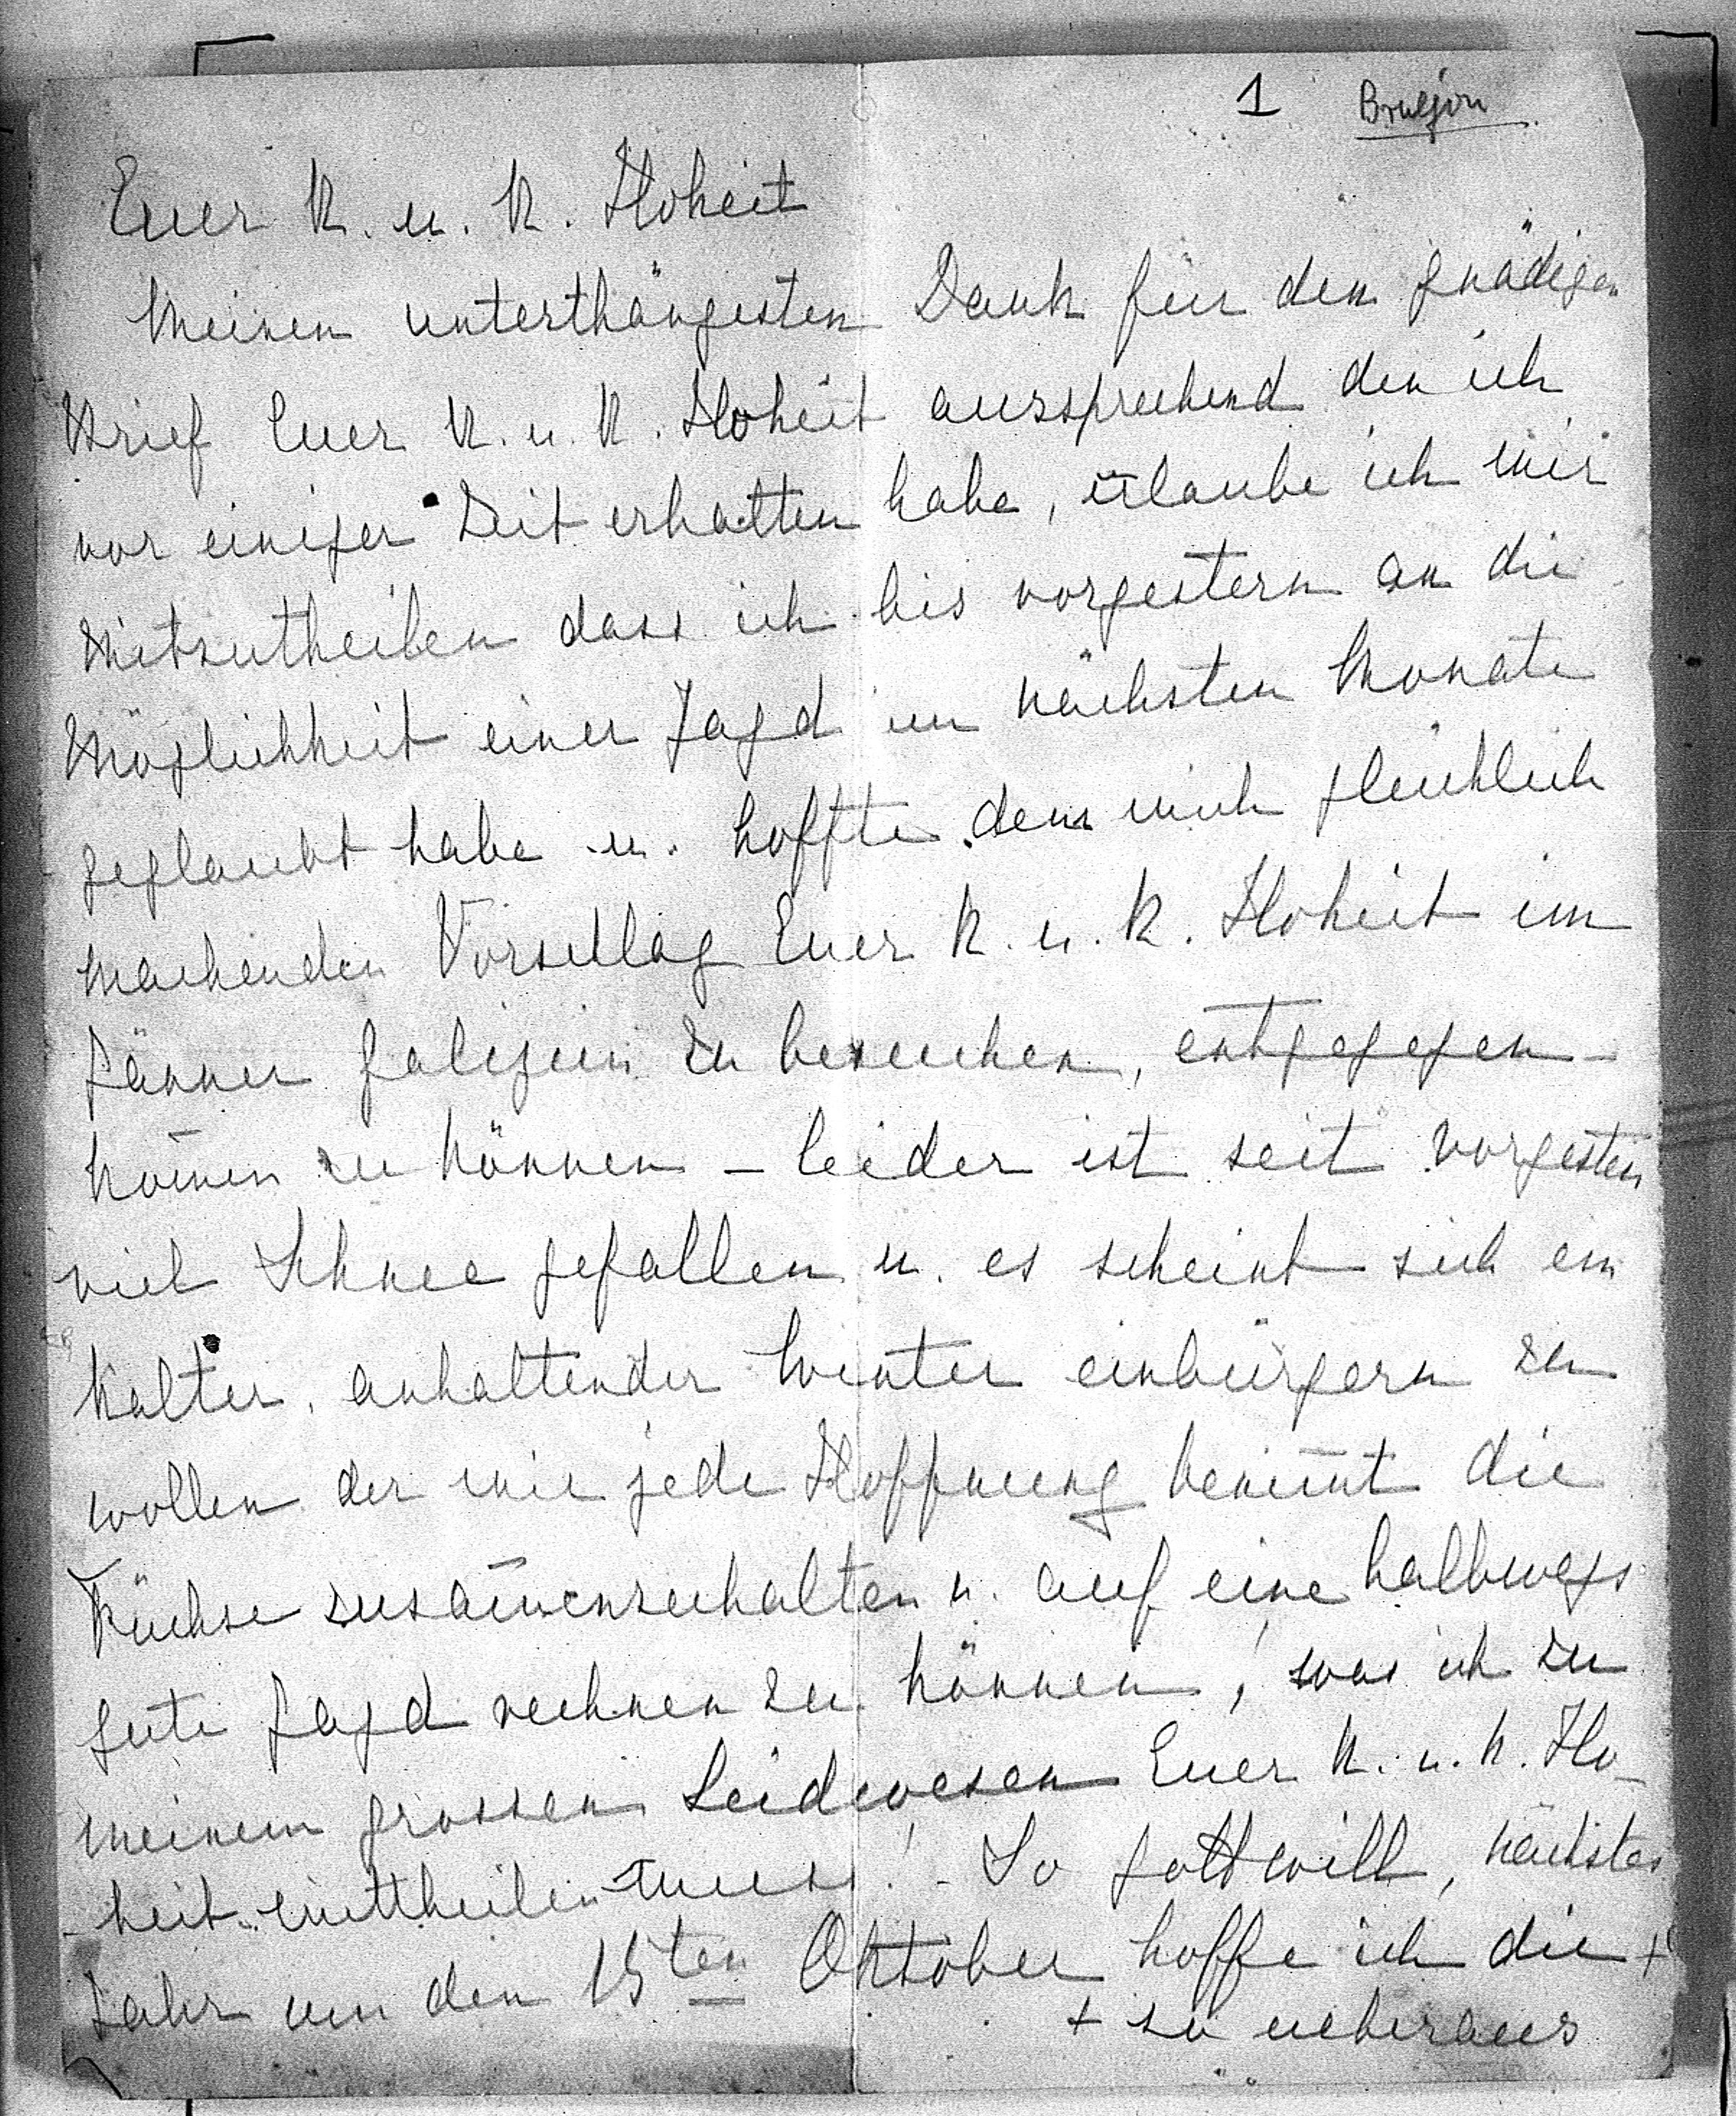 1
Euer K. u. K. Hoheit
Meinen unterthängesten Dank für den gnädigen
Brief Euer K. u. K. Hoheit aussprechend den ich
vor einiger Zeit erhalten habe, erlaube ich mir
Mitzutheilen dass ich bis vorgestern an die
Möglichkeit einer Jagd im nächsten Monate
geglaubt habe u. hoffte dem mich glücklich
machenden Vorschlag Euer K. u. K. Hoheit im
Jänner Galizien zu besuchen, entgegegen-
kom̄en zu können – leider ist seit vorgestern
viel Schnee gefallen u. es scheint sich ein
kalter, anhaltender Winter einbürgern zu
wollen der mir jede Hoffnung benim̄t die
Füchse zusam̄enzuhalten u. auf eine halbwegs
gute Jagd rechnen zu können, was ich zu
meinem grossen Leidwesen Euer K. u. K. Ho-
heit mittheilen muss! - So Gott will, nächstes
Jahr um den 15ten Oktober hoffe ich die +
+ so ueberaus